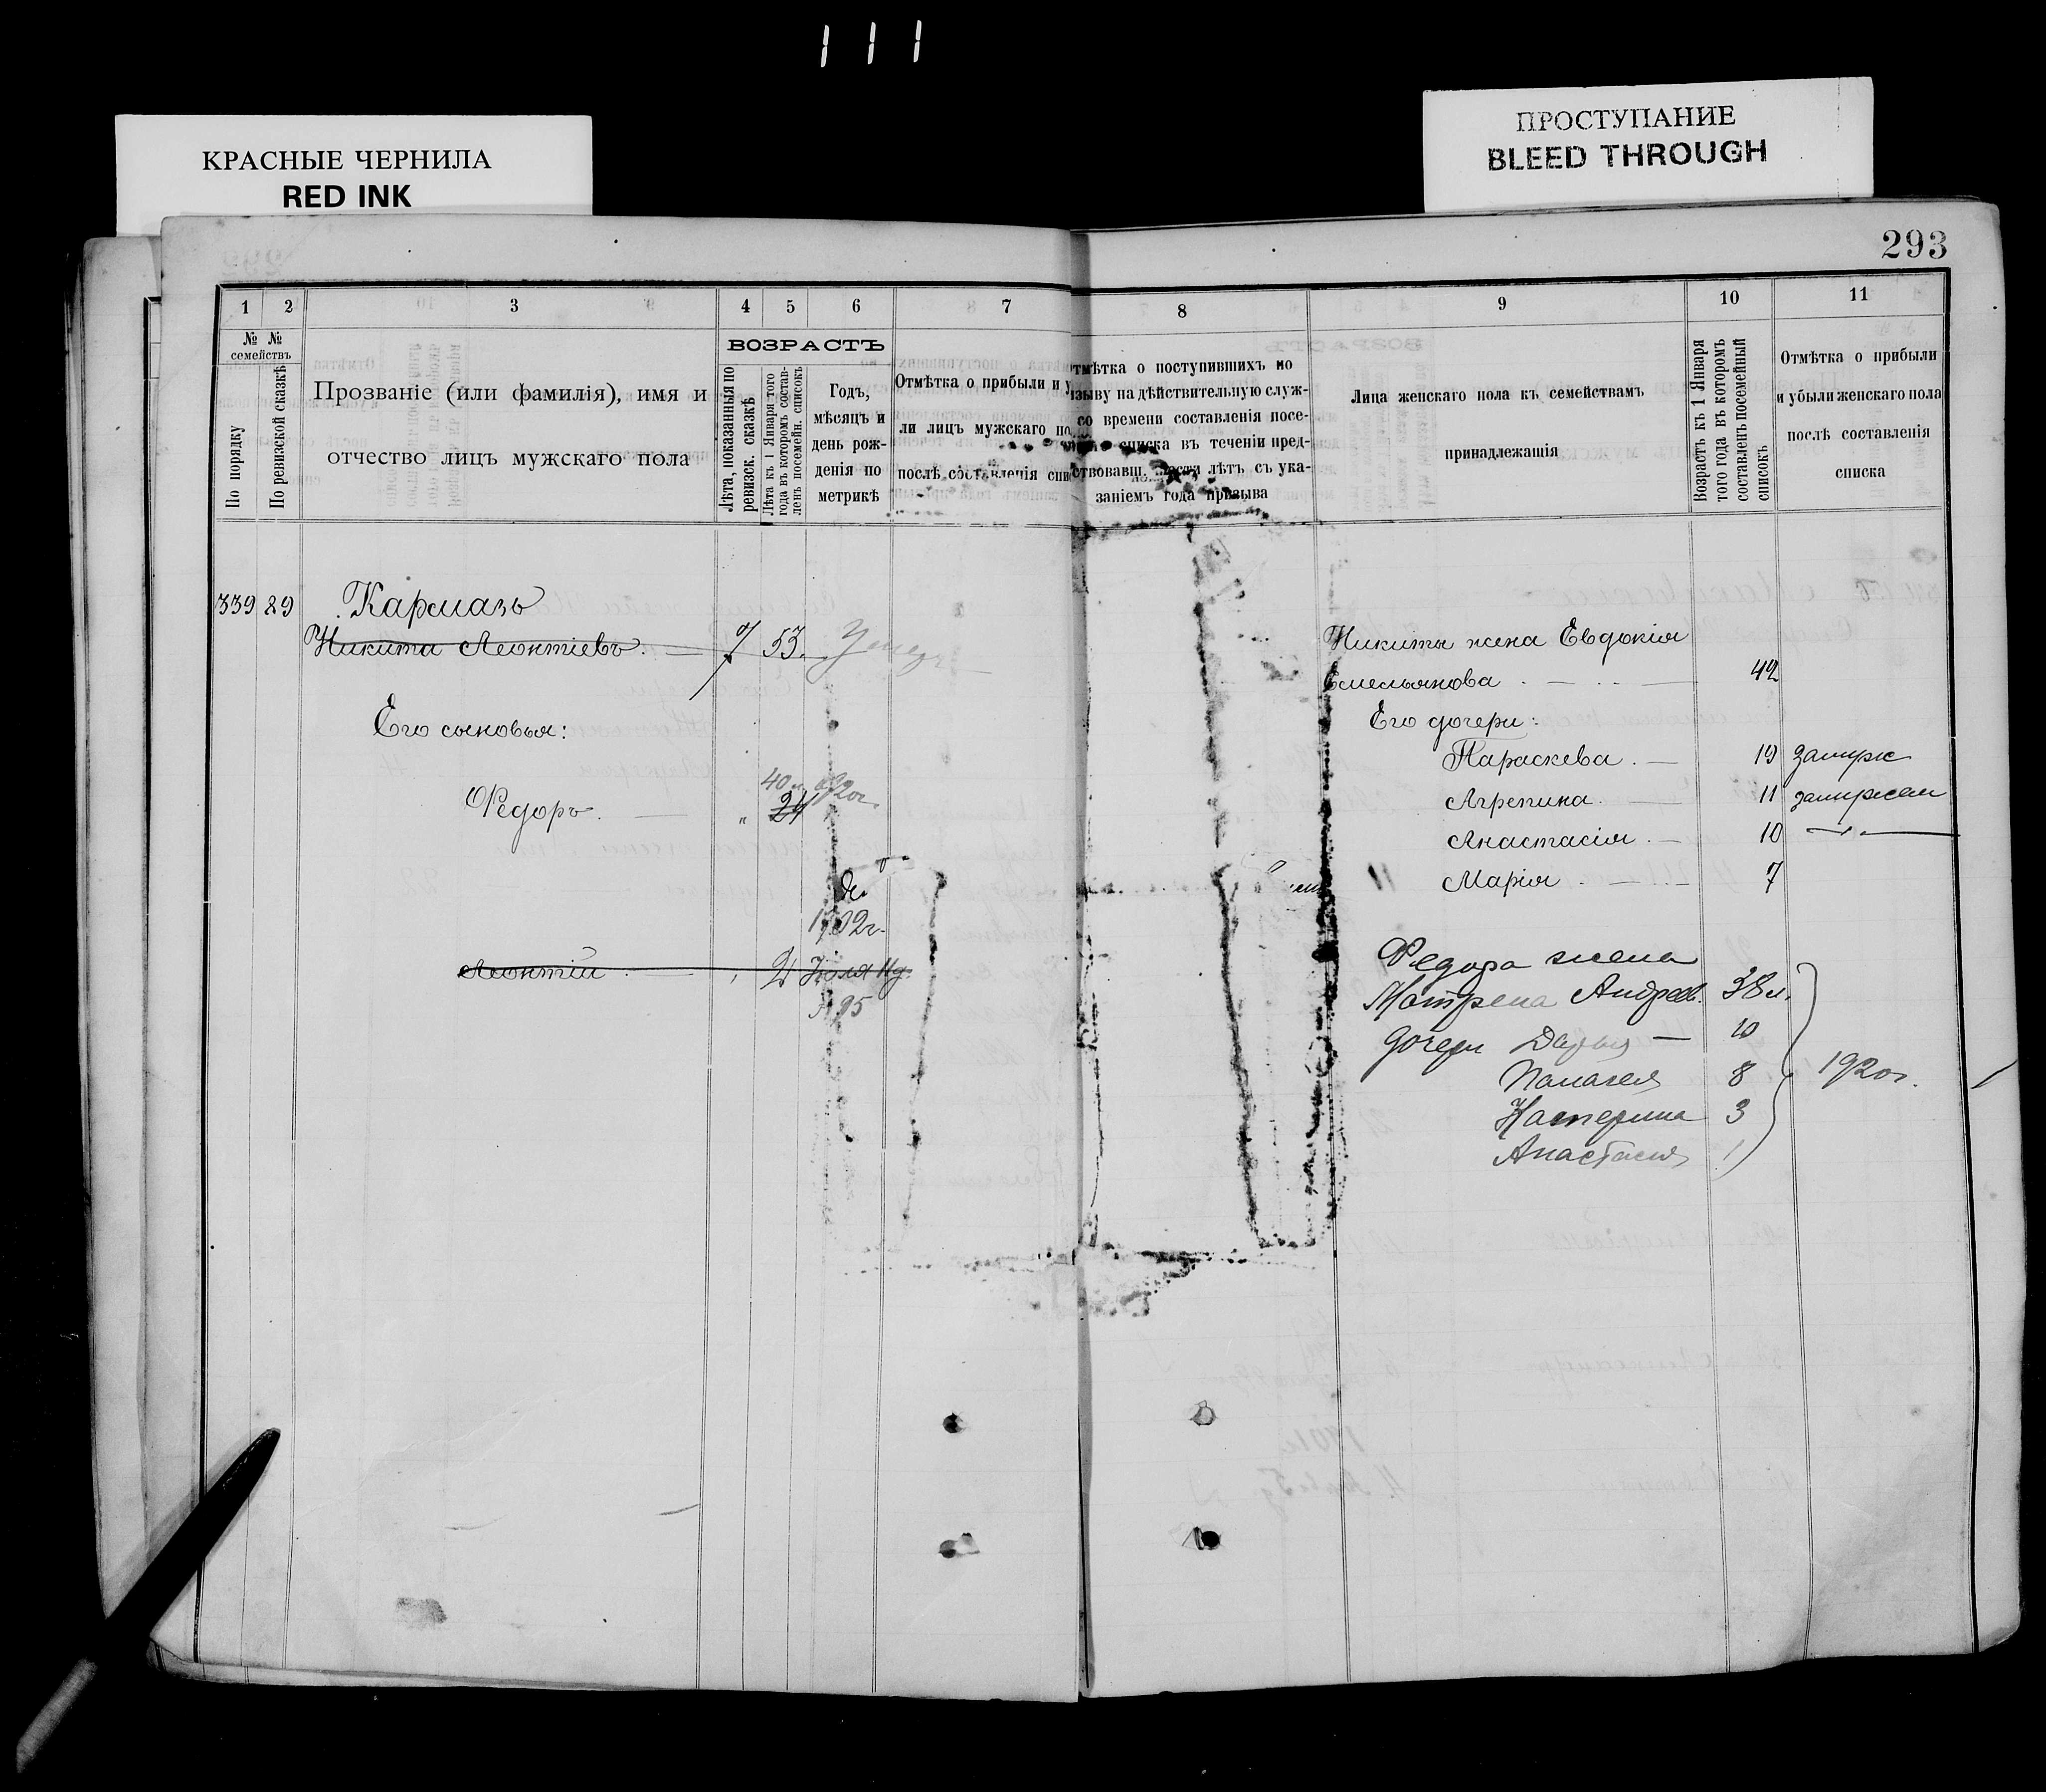 111
КРАСНЫЕ ЧЕРНИЛА
RED INK
ПРОСТУПАНИЕ
BLEED THROUGH
293
1 2 3 4 5 6 7 8 9 10 11
№ № семействъ
По порядку
По ревизской сказкѣ
Прозваніе (или фамилія), имя и
отчество лицъ мужскаго пола
ВОЗРАСТЪ
Лѣта, показанныя по
ревизск. сказкѣ
Лѣта къ 1 Января того
года въ которомъ состав-
ленъ посемейн. списокъ
Годъ,
мѣсяцъ и
день рож-
денія по
метрикѣ
Отмѣтка о прибыли и у
ли лицъ мужскаго по
послѣ составленія спи
тмѣтка о поступившихъ по
изыву на дѣйствительную служ-
со времени составленія посе-
списка въ теченіи пред-
ствовавш. шести лѣтъ съ ука-
заніемъ года призыва
Лица женскаго пола къ семействамъ
принадлежащія
Возрастъ къ 1 Января
того года въ которомъ
составленъ посемейный
списокъ
Отмѣтка о прибыли
и убыли женскаго пола
послѣ составленія
списка
339 89 Кармазь
Никита Леонтіевъ. 7 53.
Его сыновья:
40 л. 1920г.
Федоръ. " 24
1902г.
Леонтій 2 Іюля
Никиты жена Евдокія
Емельянова 42
Его дочери:
Параскева 19 замуже
Агрепина 11 замужем
Анастасія 10
Марія 7
Федора жена
Матрена Андреев. 38 л.
дочери Дарья 10
Палагея 8 1920г.
Катерина 3
Анастасия 1